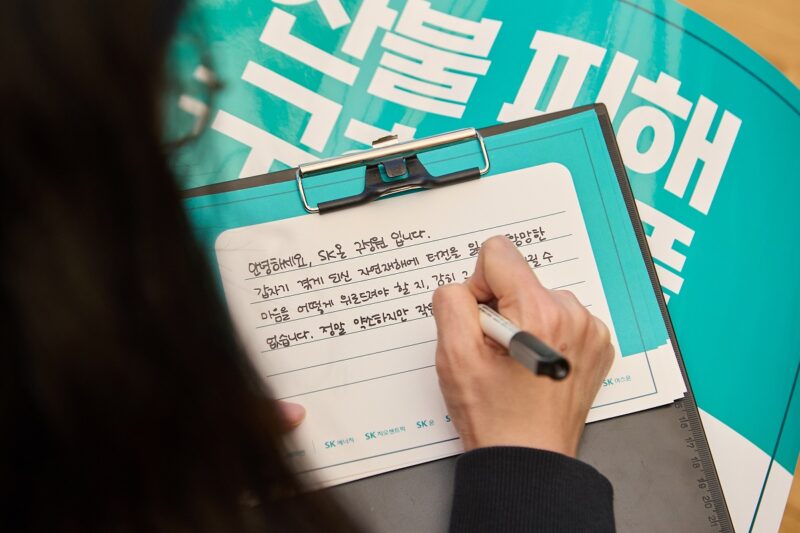 산불 피해
안녕하세요, SK온 구성원 입니다.
갑자기 겪게 되신 자연재해에 터전을 잃 황망한
마음을 어떻게 위로드려야 할 지, 감히 수
없습니다. 정말 약소하지만 작
SK 에너지 SK 지오센트릭 SK 온 SK 어스온
15 16 17 18 19 20 21